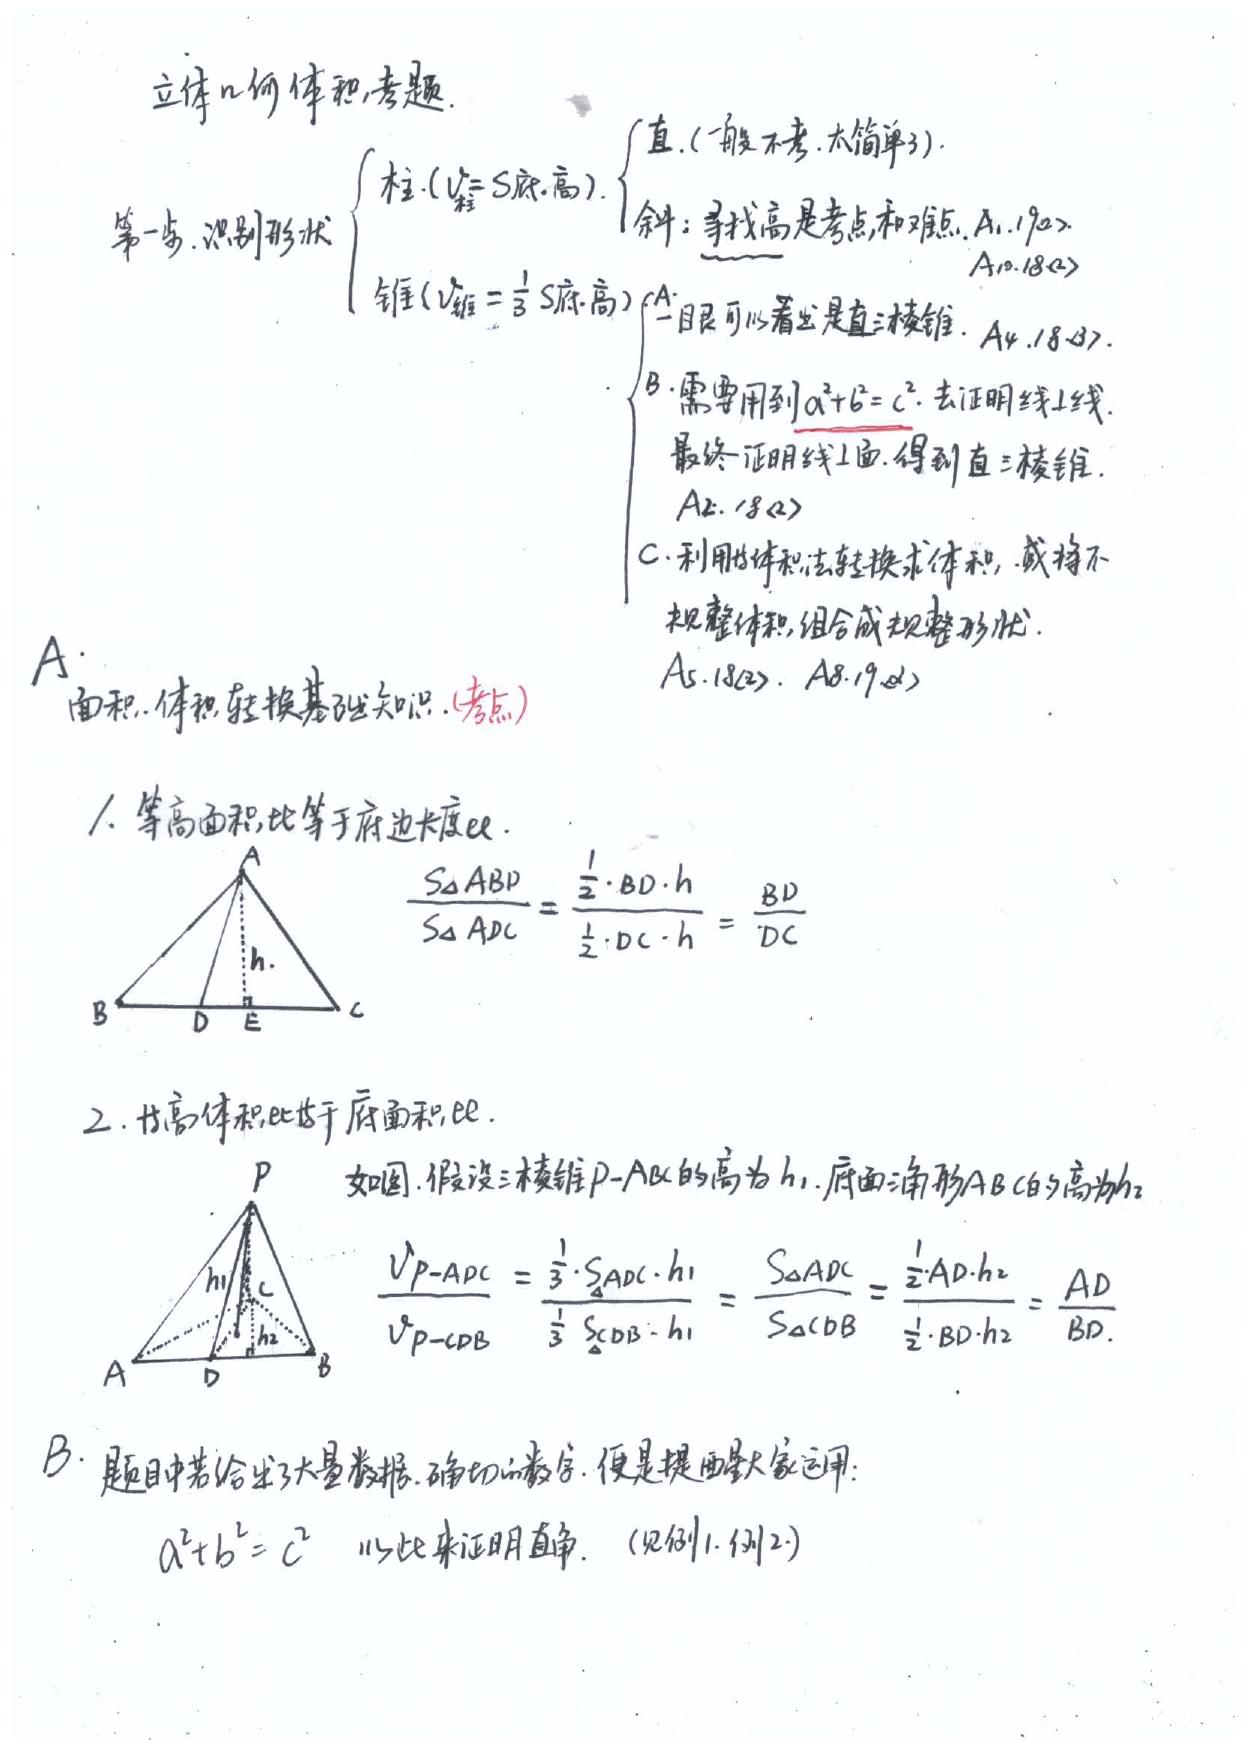 立体几何体积考题.
第一步.识别形状
柱.(V柱=S底·高).
直.(一般不考.太简单了).
斜:寻找高是考点和难点. A1.19<2>.
A10.18<2>
锥(V锥=1/3 S底·高)
A.一眼可以看出是直三棱锥. A4.18<3>.
B.需要用到a²+b²=c².去证明线⊥线.
最终证明线⊥面.得到直三棱锥.
A2.18<2>
C.利用等体积法转换求体积,或将不
规整体积,组合成规整形状.
A5.18(2). A8.19<2>
A.
面积.体积转换基础知识.(考点)
1.等高面积比等于底边长度比.
A
h.
B D E C
S△ABD/S△ADC = (1/2·BD·h)/(1/2·DC·h) = BD/DC
2.等高体积比等于底面积比.
如图.假设三棱锥P-ABC的高为h1.底面三角形ABC的高为h2
P
h1 C
h2
A D B
VP-ADC/VP-CDB = (1/3·S△ADC·h1)/(1/3 S△CDB·h1) = S△ADC/S△CDB = (1/2·AD·h2)/(1/2·BD·h2) = AD/BD.
B.题目中若给出了大量数据.确切的数字.便是提醒大家运用:
a²+b²=c² 以此来证明直角. (见例1.例2.)